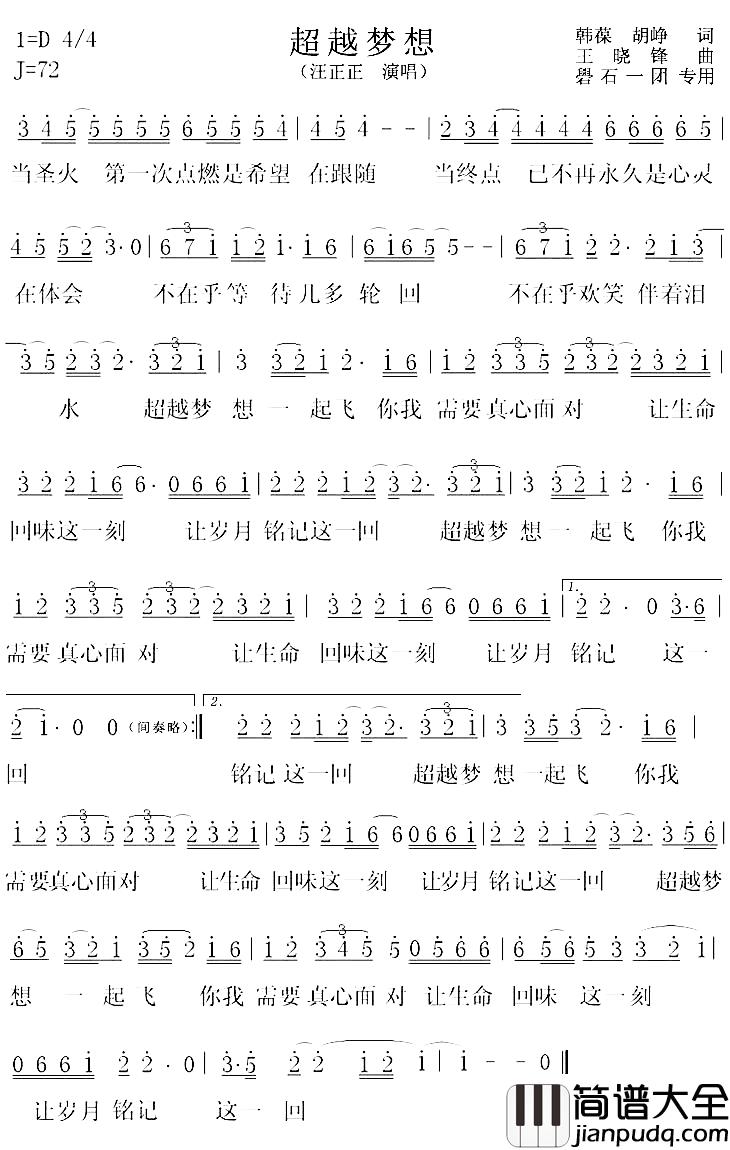 1=D 4/4
J=72
超越梦想
(汪正正 演唱)
韩葆 胡峥 词
王晓锋 曲
礐石一团 专用
3 4 5 5 5 5 5 6 5 5 5 4 | 4 5 4 - - | 2 3 4 4 4 4 4 6 6 6 6 5 |
当圣火 第一次点燃是希望 在跟随 当终点 已不再永久是心灵
4 5 5 2 3· 0 | 6 7 1 1 2 1· 1 6 | 6 1 6 5 5 - - | 6 7 1 2 2· 2 1 3 |
在体会 不在乎等 待几多 轮 回 不在乎欢笑 伴着泪
3 5 2 3 2· 3 2 1 | 3 3 2 1 2· 1 6 | 1 2 3 3 5 2 3 2 2 3 2 1 |
水 超越梦 想 一 起飞 你我 需要真心面对 让生命
3 2 2 1 6 6· 0 6 6 1 | 2 2 2 1 2 3 2· 3 2 1 | 3 3 2 1 2· 1 6 |
回味这一刻 让岁月 铭记这一回 超越梦 想一起飞 你我
1 2 3 3 5 2 3 2 2 3 2 1 | 3 2 2 1 6 6 0 6 6 1 | 1. 2 2· 0 3·6 |
需要真心面 对 让生命 回味这一刻 让岁月 铭记 这一
2 1· 0 0 (间奏略) :‖ 2. 2 2 2 1 2 3 2· 3 2 1 | 3 3 5 3 2· 1 6 |
回 铭记 这一回 超越梦 想一起飞 你我
1 2 3 3 5 2 3 2 2 3 2 1 | 3 5 2 1 6 6 0 6 6 1 | 2 2 2 1 2 3 2· 3 5 6 |
需要真心面对 让生命 回味这一刻 让岁月 铭记这一回 超越梦
6 5 3 2 1 3 5 2 1 6 | 1 2 3 4 5 5 0 5 6 6 | 6 5 6 5 3 3 2 1 |
想 一 起飞 你我 需要真心面对 让生命 回味 这一刻
0 6 6 1 2 2· 0 | 3·5 2 2 1 2 | 1 - - 0 ‖
让岁月 铭记 这一 回
简谱大全
jianpudq.com